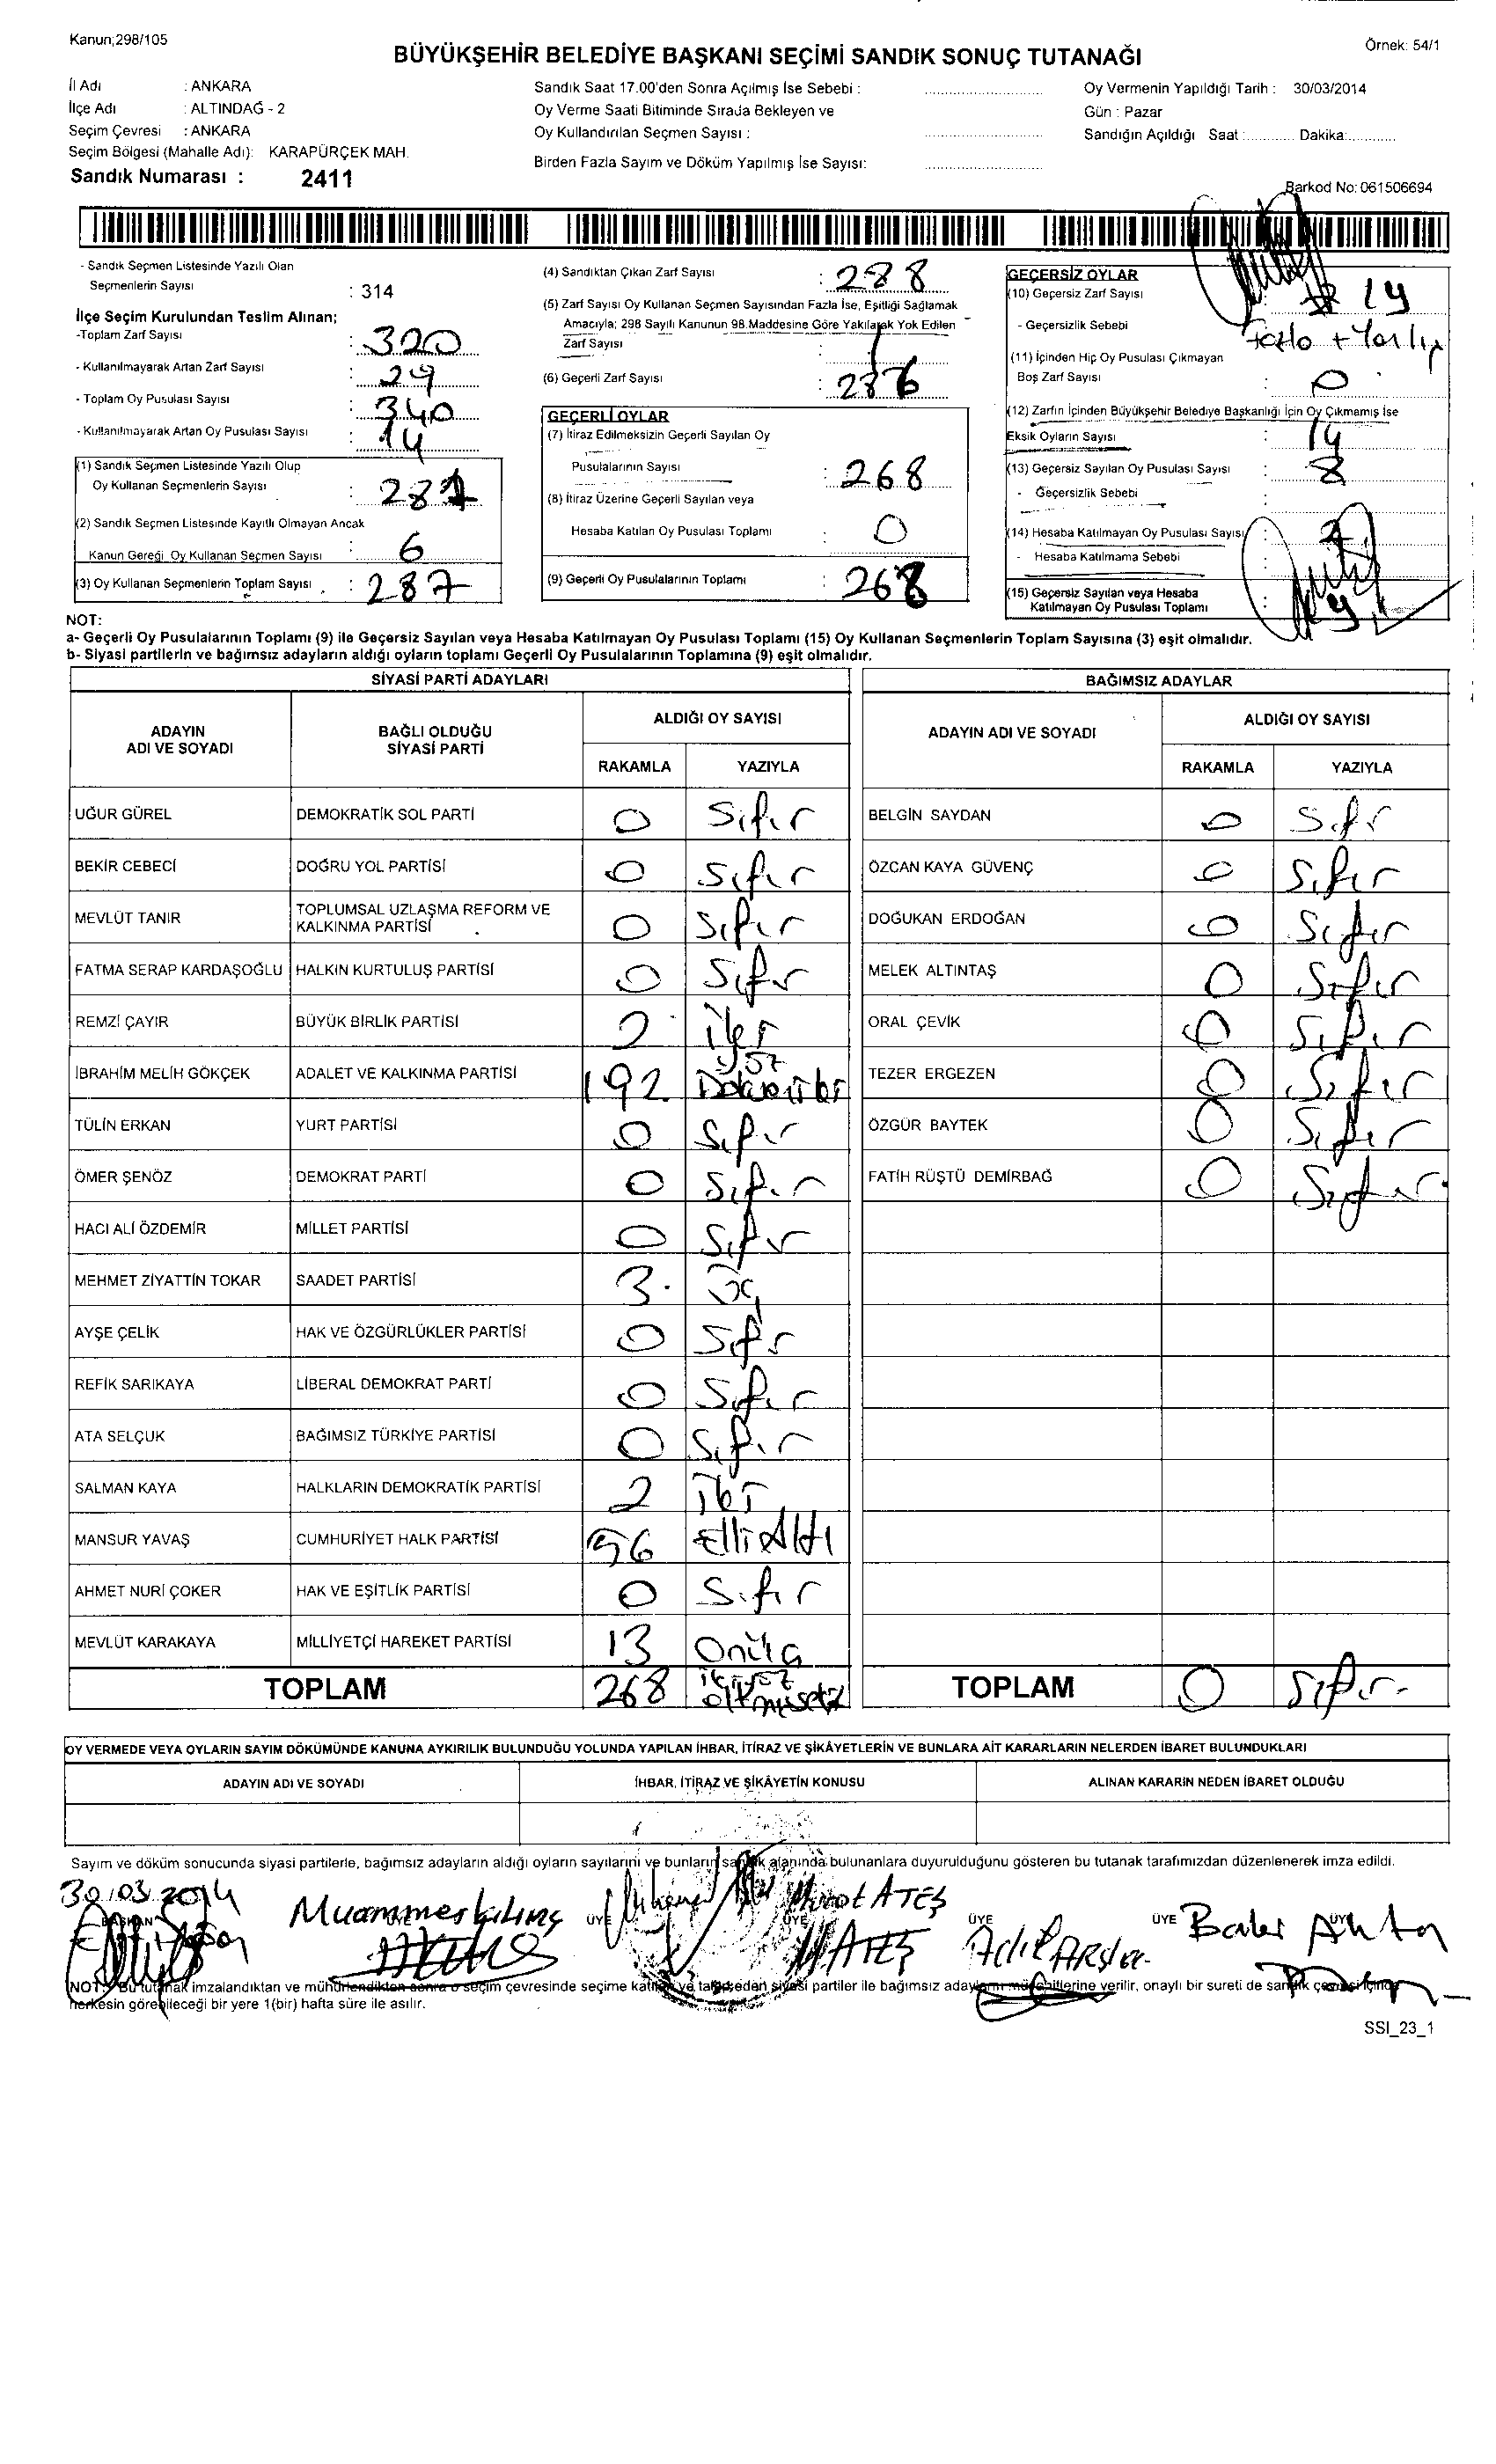 Kanun;298/105
Örnek: 54/1
BÜYÜKŞEHİR BELEDİYE BAŞKANI SEÇİMİ SANDIK SONUÇ TUTANAĞI
İl Adı : ANKARA
İlçe Adı : ALTINDAĞ - 2
Seçim Çevresi : ANKARA
Seçim Bölgesi (Mahalle Adı): KARAPÜRÇEK MAH.
Sandık Numarası : 2411
Sandık Saat 17.00'den Sonra Açılmış İse Sebebi :
Oy Verme Saati Bitiminde Sırada Bekleyen ve
Oy Kullandırılan Seçmen Sayısı :
Birden Fazla Sayım ve Döküm Yapılmış İse Sayısı:
Oy Vermenin Yapıldığı Tarih : 30/03/2014
Gün : Pazar
Sandığın Açıldığı Saat:............ Dakika:............
Barkod No: 061506694
- Sandık Seçmen Listesinde Yazılı Olan
Seçmenlerin Sayısı : 314
İlçe Seçim Kurulundan Teslim Alınan;
-Toplam Zarf Sayısı : 320
- Kullanılmayarak Artan Zarf Sayısı : 29
- Toplam Oy Pusulası Sayısı : 340
- Kullanılmayarak Artan Oy Pusulası Sayısı : 14
(1) Sandık Seçmen Listesinde Yazılı Olup
Oy Kullanan Seçmenlerin Sayısı : 281
(2) Sandık Seçmen Listesinde Kayıtlı Olmayan Ancak
Kanun Gereği Oy Kullanan Seçmen Sayısı : 6
(3) Oy Kullanan Seçmenlerin Toplam Sayısı : 287
(4) Sandıktan Çıkan Zarf Sayısı : 288
(5) Zarf Sayısı Oy Kullanan Seçmen Sayısından Fazla İse, Eşitliği Sağlamak
Amacıyla; 298 Sayılı Kanunun 98.Maddesine Göre Yakılarak Yok Edilen
Zarf Sayısı : 1
(6) Geçerli Zarf Sayısı : 286
GEÇERLİ OYLAR
(7) İtiraz Edilmeksizin Geçerli Sayılan Oy
Pusulalarının Sayısı : 268
(8) İtiraz Üzerine Geçerli Sayılan veya
Hesaba Katılan Oy Pusulası Toplamı : 0
(9) Geçerli Oy Pusulalarının Toplamı : 268
GEÇERSİZ OYLAR
(10) Geçersiz Zarf Sayısı 14
- Geçersizlik Sebebi
(11) İçinden Hiç Oy Pusulası Çıkmayan
Boş Zarf Sayısı : 0
(12) Zarfın İçinden Büyükşehir Belediye Başkanlığı İçin Oy Çıkmamış İse
Eksik Oyların Sayısı : 14
(13) Geçersiz Sayılan Oy Pusulası Sayısı : 8
- Geçersizlik Sebebi :
(14) Hesaba Katılmayan Oy Pusulası Sayısı
- Hesaba Katılmama Sebebi
(15) Geçersiz Sayılan veya Hesaba
Katılmayan Oy Pusulası Toplamı :
NOT:
a- Geçerli Oy Pusulalarının Toplamı (9) ile Geçersiz Sayılan veya Hesaba Katılmayan Oy Pusulası Toplamı (15) Oy Kullanan Seçmenlerin Toplam Sayısına (3) eşit olmalıdır.
b- Siyasi partilerin ve bağımsız adayların aldığı oyların toplamı Geçerli Oy Pusulalarının Toplamına (9) eşit olmalıdır.
SİYASİ PARTİ ADAYLARI
ADAYIN ADI VE SOYADI
BAĞLI OLDUĞU SİYASİ PARTİ
ALDIĞI OY SAYISI
RAKAMLA YAZIYLA
UĞUR GÜREL DEMOKRATİK SOL PARTİ 0 Sıfır
BEKİR CEBECİ DOĞRU YOL PARTİSİ 0 Sıfır
MEVLÜT TANIR TOPLUMSAL UZLAŞMA REFORM VE KALKINMA PARTİSİ 0 Sıfır
FATMA SERAP KARDAŞOĞLU HALKIN KURTULUŞ PARTİSİ 0 Sıfır
REMZİ ÇAYIR BÜYÜK BİRLİK PARTİSİ 2 iki
İBRAHİM MELİH GÖKÇEK ADALET VE KALKINMA PARTİSİ 192 yüz Doksaniki
TÜLİN ERKAN YURT PARTİSİ 0 Sıfır
ÖMER ŞENÖZ DEMOKRAT PARTİ 0 Sıfır
HACI ALİ ÖZDEMİR MİLLET PARTİSİ 0 Sıfır
MEHMET ZİYATTİN TOKAR SAADET PARTİSİ 3 üç
AYŞE ÇELİK HAK VE ÖZGÜRLÜKLER PARTİSİ 0 Sıfır
REFİK SARIKAYA LİBERAL DEMOKRAT PARTİ 0 Sıfır
ATA SELÇUK BAĞIMSIZ TÜRKİYE PARTİSİ 0 Sıfır
SALMAN KAYA HALKLARIN DEMOKRATİK PARTİSİ 2 iki
MANSUR YAVAŞ CUMHURİYET HALK PARTİSİ 56 ElliAltı
AHMET NURİ ÇOKER HAK VE EŞİTLİK PARTİSİ 0 Sıfır
MEVLÜT KARAKAYA MİLLİYETÇİ HAREKET PARTİSİ 13 Onüç
TOPLAM 268 ikiyüz altmışsekiz
BAĞIMSIZ ADAYLAR
ADAYIN ADI VE SOYADI
ALDIĞI OY SAYISI
RAKAMLA YAZIYLA
BELGİN SAYDAN 0 Sıfır
ÖZCAN KAYA GÜVENÇ 0 Sıfır
DOĞUKAN ERDOĞAN 0 Sıfır
MELEK ALTINTAŞ 0 Sıfır
ORAL ÇEVİK 0 Sıfır
TEZER ERGEZEN 0 Sıfır
ÖZGÜR BAYTEK 0 Sıfır
FATİH RÜŞTÜ DEMİRBAĞ 0 Sıfır
TOPLAM 0 Sıfır
OY VERMEDE VEYA OYLARIN SAYIM DÖKÜMÜNDE KANUNA AYKIRILIK BULUNDUĞU YOLUNDA YAPILAN İHBAR, İTİRAZ VE ŞİKÂYETLERİN VE BUNLARA AİT KARARLARIN NELERDEN İBARET BULUNDUKLARI
ADAYIN ADI VE SOYADI İHBAR, İTİRAZ VE ŞİKÂYETİN KONUSU ALINAN KARARIN NEDEN İBARET OLDUĞU
Sayım ve döküm sonucunda siyasi partilerle, bağımsız adayların aldığı oyların sayılarını ve bunların sandık alanında bulunanlara duyurulduğunu gösteren bu tutanak tarafımızdan düzenlenerek imza edildi.
30/03/2014
BAŞKAN ÜYE ÜYE ÜYE ÜYE ÜYE
Muammer Kılınç Murat ATEŞ
ATEŞ
NOT: Bu tutanak imzalandıktan ve mühürlendikten sonra o seçim çevresinde seçime katılan ve talep eden siyasi partiler ile bağımsız adayların müşahitlerine verilir, onaylı bir sureti de sandık çevresi içinde
herkesin görebileceği bir yere 1(bir) hafta süre ile asılır.
SSI_23_1